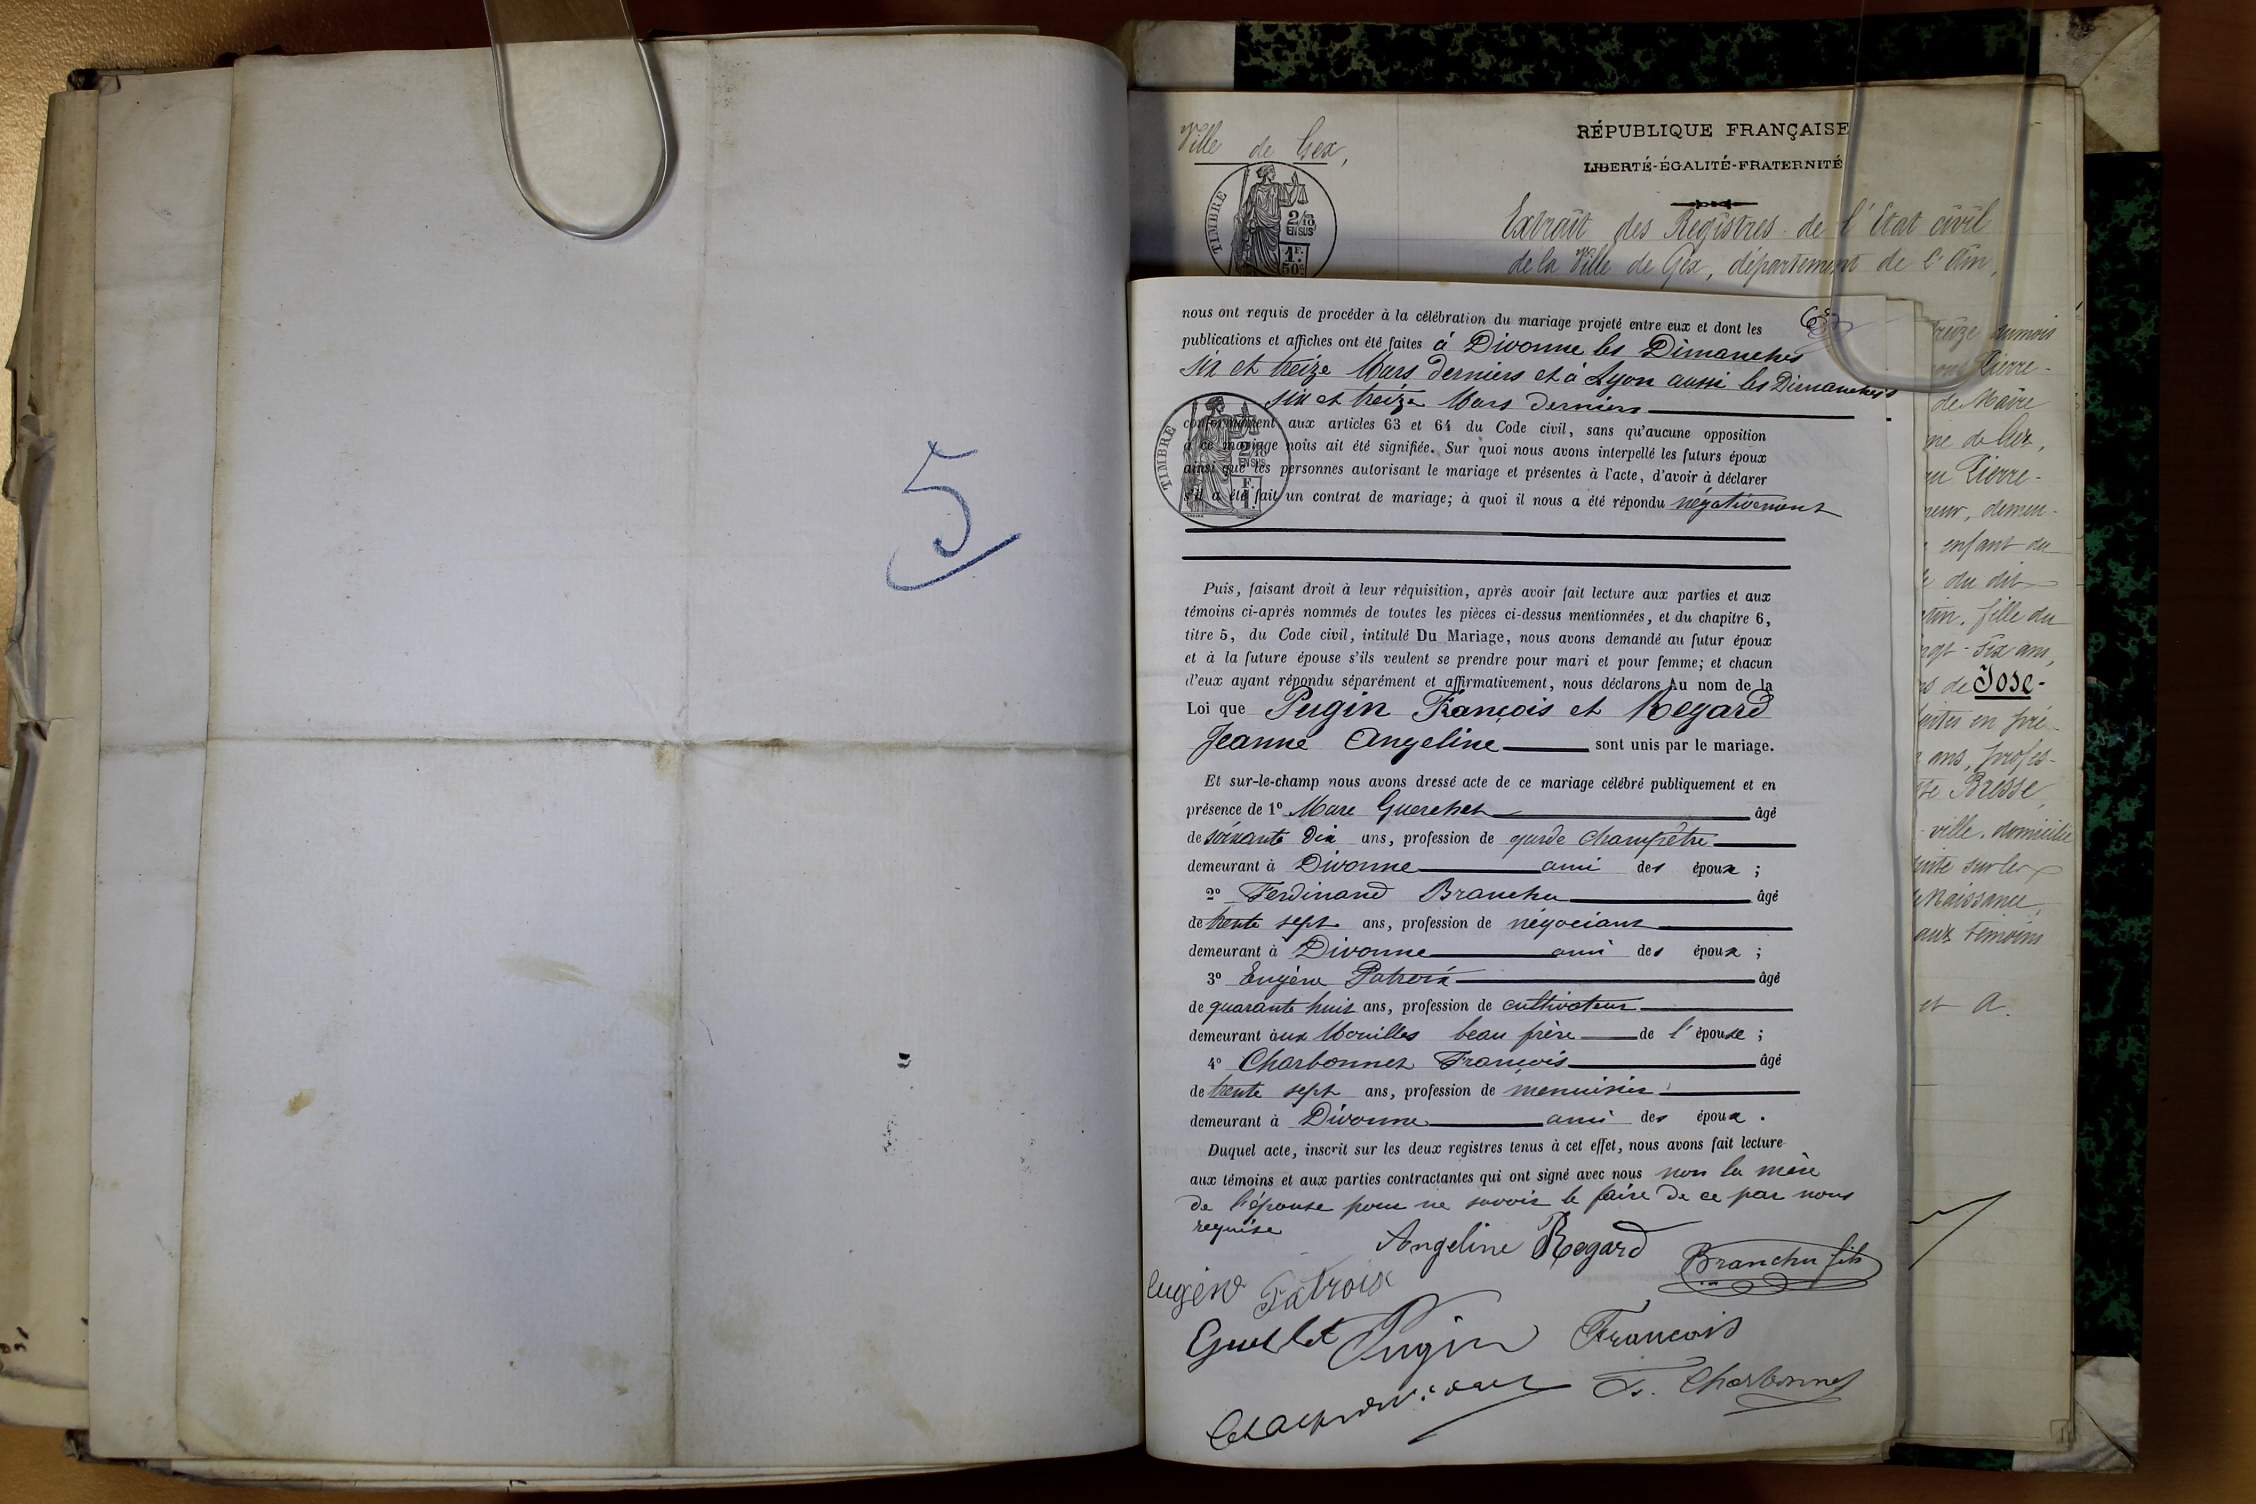 5
Ville de Gex,
RÉPUBLIQUE FRANÇAISE
LIBERTÉ-ÉGALITÉ-FRATERNITÉ
TIMBRE
2/10
EN SUS
1F.
50c
Extrait des Registres de l'Etat civil
de la Ville de Gex, département de l'Ain,
nous ont requis de procéder à la célébration du mariage projeté entre eux et dont les
publications et affiches ont été faites à Divonne les Dimanches
six et treize Mars derniers et à Lyon aussi les Dimanches
six et treize Mars derniers
conformément aux articles 63 et 64 du Code civil, sans qu'aucune opposition
à ce mariage nous ait été signifiée. Sur quoi nous avons interpellé les futurs époux
ainsi que les personnes autorisant le mariage et présentes à l'acte, d'avoir à déclarer
s'il a été fait un contrat de mariage; à quoi il nous a été répondu négativement
TIMBRE
2/10
EN SUS
F.
1.
Puis, faisant droit à leur réquisition, après avoir fait lecture aux parties et aux
témoins ci-après nommés de toutes les pièces ci-dessus mentionnées, et du chapitre 6,
titre 5, du Code civil, intitulé Du Mariage, nous avons demandé au futur époux
et à la future épouse s'ils veulent se prendre pour mari et pour femme; et chacun
d'eux ayant répondu séparément et affirmativement, nous déclarons Au nom de la
Loi que Pugin François et Regard
Jeanne Angeline sont unis par le mariage.
Et sur-le-champ nous avons dressé acte de ce mariage célébré publiquement et en
présence de 1º Marc Guerchet âgé
de soixante dix ans, profession de garde champêtre
demeurant à Divonne ami des époux ;
2º Ferdinand Branchu âgé
de trente sept ans, profession de négociant
demeurant à Divonne ami des époux ;
3º Eugène Patroix âgé
de quarante huit ans, profession de cultivateur
demeurant aux Mouilles beau frère de l'épouse ;
4º Charbonnet François âgé
de trente sept ans, profession de menuisier
demeurant à Divonne ami des époux .
Duquel acte, inscrit sur les deux registres tenus à cet effet, nous avons fait lecture
aux témoins et aux parties contractantes qui ont signé avec nous non la mère
de l'épouse pour ne savoir le faire de ce par nous
requise
Angeline Regard
Branchu fils
Eugène Patroix
Pugin François
F. Charbonnet
treize du mois
Pierre-
de Maire
Pierre-
enfant du
du dit
fille du
six ans,
de Jose-
en pré-
ans, profes-
Bresse
ville. domicilié
sur les
Naissance,
aux témoins
et A.